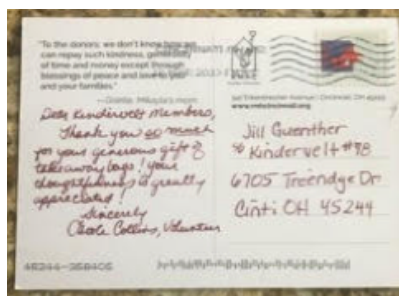 "To the donors: we don't know how we
can repay such kindness, generosity
of time and money except through
blessings of peace and love to you
and your families."
Mikayla's mom
Dear Kindervelt Members,
Thank you so much
for your generous gift of
takeaway bags! Your
thoughtfulness is greatly
appreciated!
Sincerely
Collins, Volunteer
Avenue | Cincinnati, OH
www.rmhcincinnati.org
Jill Guenther
% Kindervelt #78
6705 Treeridge Dr
Cinti OH 45244
45244-3584